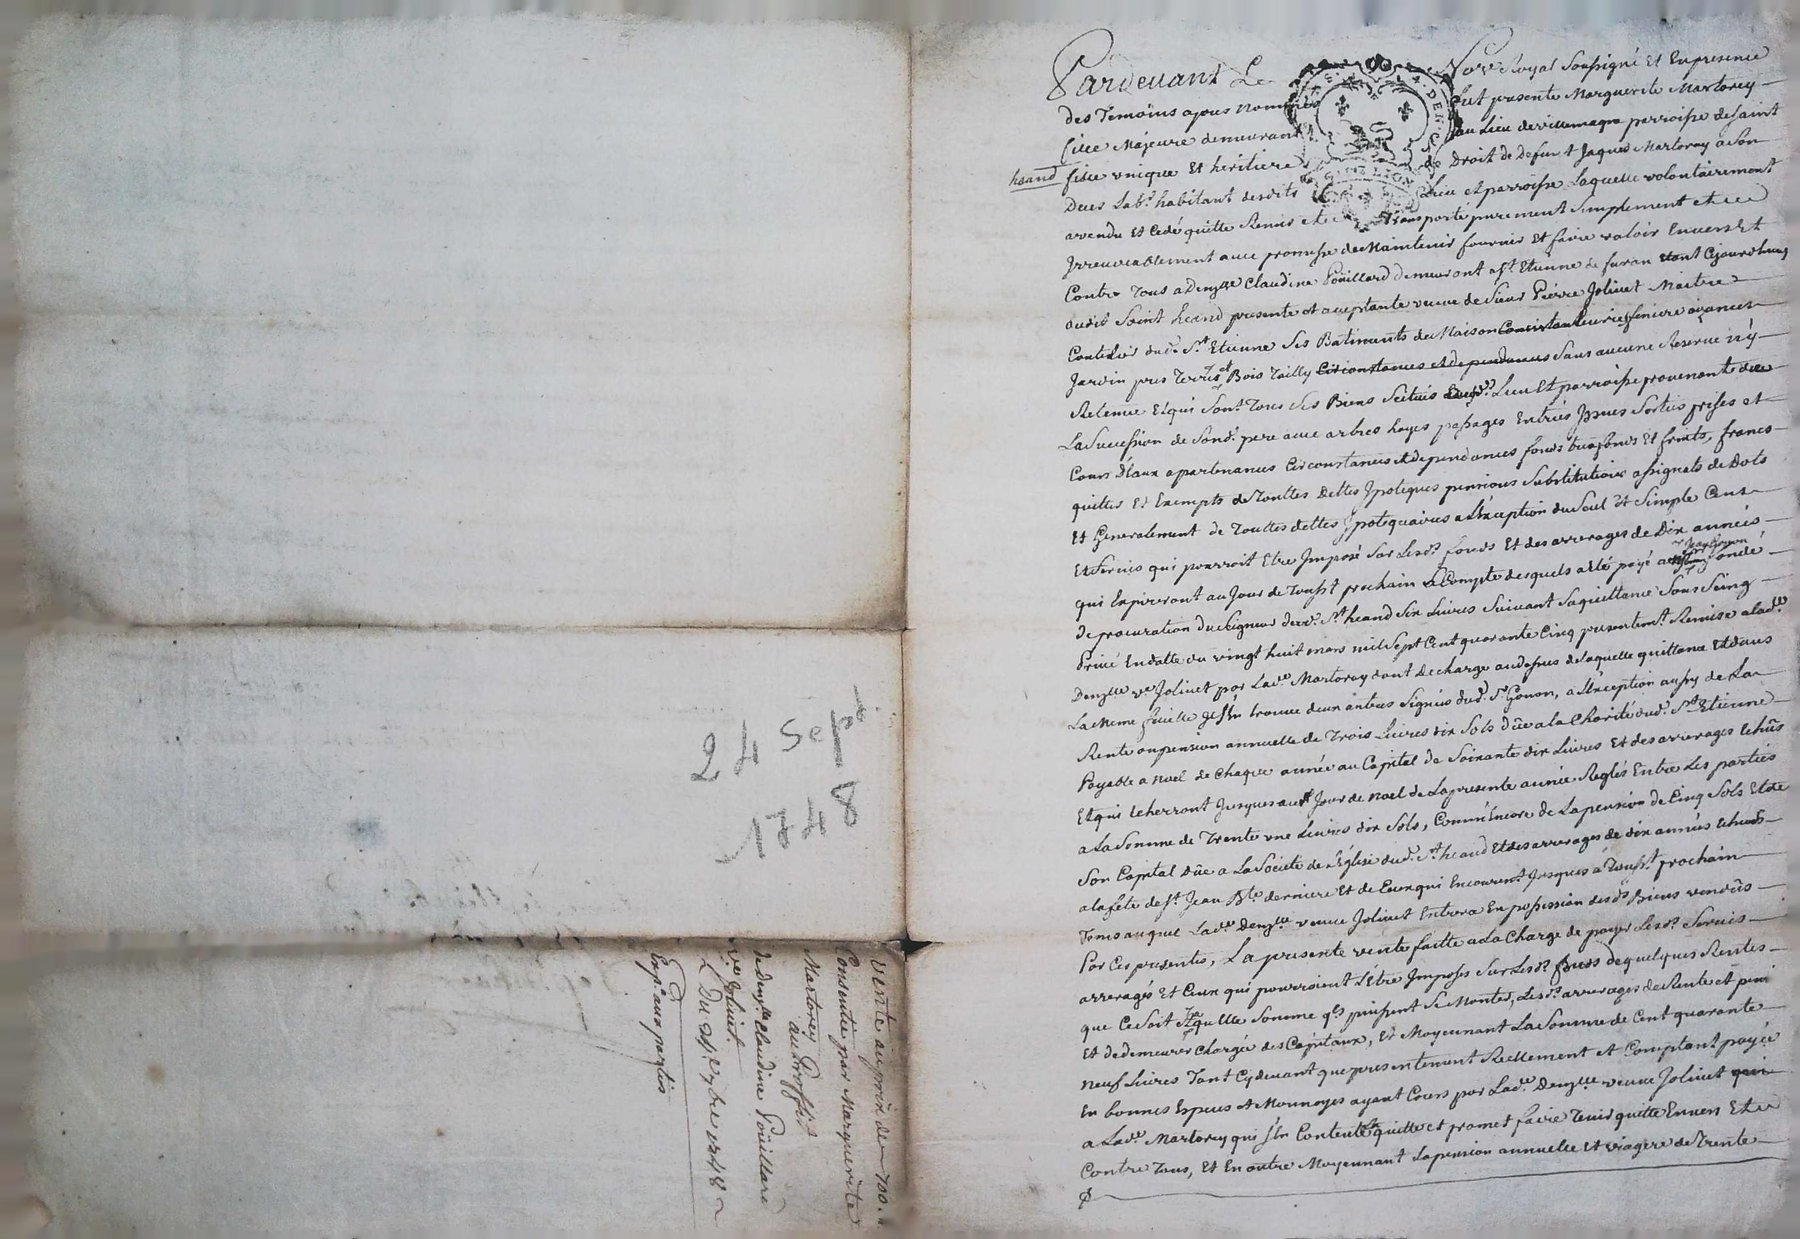 24 Sept
1748
Vente au prix de 700.
Consentie par Marguerite
Martorey
au Proffit
de demlle Claudine Poüillard
ve Joliuet
Du 24e 7bre 1748
Expn aux parties
Pardeuant Le Nore Royal soussigné Et En presence
des Temoins apres nommés fut presente Marguerite Martorey
fille Majeure demeurant au Lieu de villemagne parroisse de saint
heand fille vnique Et heritiere de Droit de Defunt Jaques Martorey a son
viuant Labr habitant desdits Lieu et parroisse Laquelle volontairement
a vendu Et Cedé quitte Remis et Transporté purement simplement et
Irreuocablement auec promesse de Maintenir fournir Et faire valoir Enuers Et
Contre Tous a Demlle Claudine Poüillard demeurant a St Etienne de furan Etant Cejourdhuy
audit Saint heand presente et aceptante veuue de Sieur Pierre Joliuet Maitre
Coutelier dud. St Etienne Ses Batiments de Maison Ecurie feniere aizances
Jardin prés Terres et Bois Tailly Circonstances et dependances Sans aucune Reserue ny
Retenue Et qui sont Tous Ses Biens Scitués Lieu Et parroisse prouenants de
La Succession de Sond. pere auec arbres hayes passages Entrées Issues Sorties prises et
Cours d'Eaux apartenances Circonstances et dependances fonds trefonds Et fruits, francs
quittes Et Exempts de Touttes Dettes Ipoteques pensions Substitutions assignats de Dots
Et Generalement de Touttes dettes Ipotequaires a L'Exception du Seul Et Simple Cens
Et Seruis qui pourroit Etre Imposé Sur Lesds fonds Et des arrerages de Dix années
qui Expireront au Jour de Tousst prochain a Compte desquels a Eté payé a Sr Jean Gonon fondé
de procuration du Seigneur dud. St heand Six Liures Suiuant Sa quittance Sous Seing
Priué En datte du vingt huit mars mil Sept Cent quarante Cinq presentemt Remise a lade
Demlle ve Joliuet par Lade Martorey dont Decharge au dessus de laquelle quittance Et dans
La meme feuille Il s'en trouue deux autres Signées dud. Sr Gonon, a L'Exception aussy de La
Rente ou pension annuelle de Trois Liures dix Sols düe a la Charité dud. St Etienne
Payable a Noel de Chaque année au Capital de Soixante dix Liures Et des arrerages Echûs
Et qui Echerront Jusques au Jour de Noel de La presente année Reglés Entre Les parties
a La Somme de Trente vne Liures dix Sols, Comm'Encore de La pension de Cinq Sols Et de
Son Capital düe a La Societé de L'Eglise dud. St heand Et des arrerages de dix années Echus
a la fete de St Jean Bte derniere Et de Ceux qui Encourent Jusques a Tousst prochain
Tems auquel Lade Demlle veuue Joliuet Entrera En possession desds Biens vendûs
Par Ces presentes, La presente vente faitte a La Charge de payer Lesds Seruis
arreragés Et Ceux qui pourroient Etre Imposés Sur Lesds fonds de quelques Rentes
que Ce Soit Et a quelle Somme qls puissent Se Monter, Lesds arrerages de Rente et pension
Et de demeurer Chargée des Capitaux, Et Moyennant La Somme de Cent quarante
neuf Liures Tant Cy deuant que presentement Reellement et Comptant payée
En bonnes Especes et Monnoyes ayant Cours par Lade Demlle veuue Joliuet
a Lade Martorey qui s'En Contente La quitte et promet faire Tenir quitte Enuers Et
Contre Tous, Et En outre Moyennant La pension annuelle Et viagere de Trente